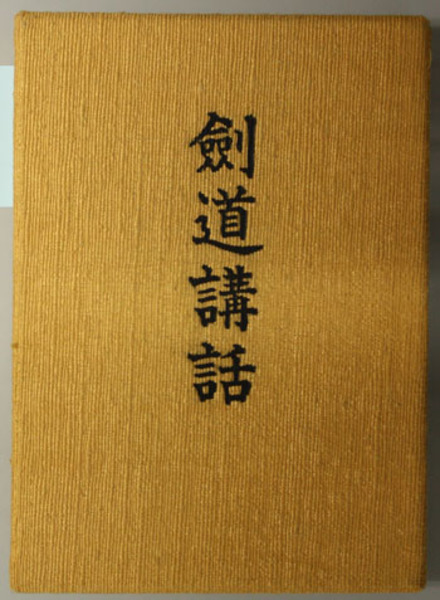 劍道講話